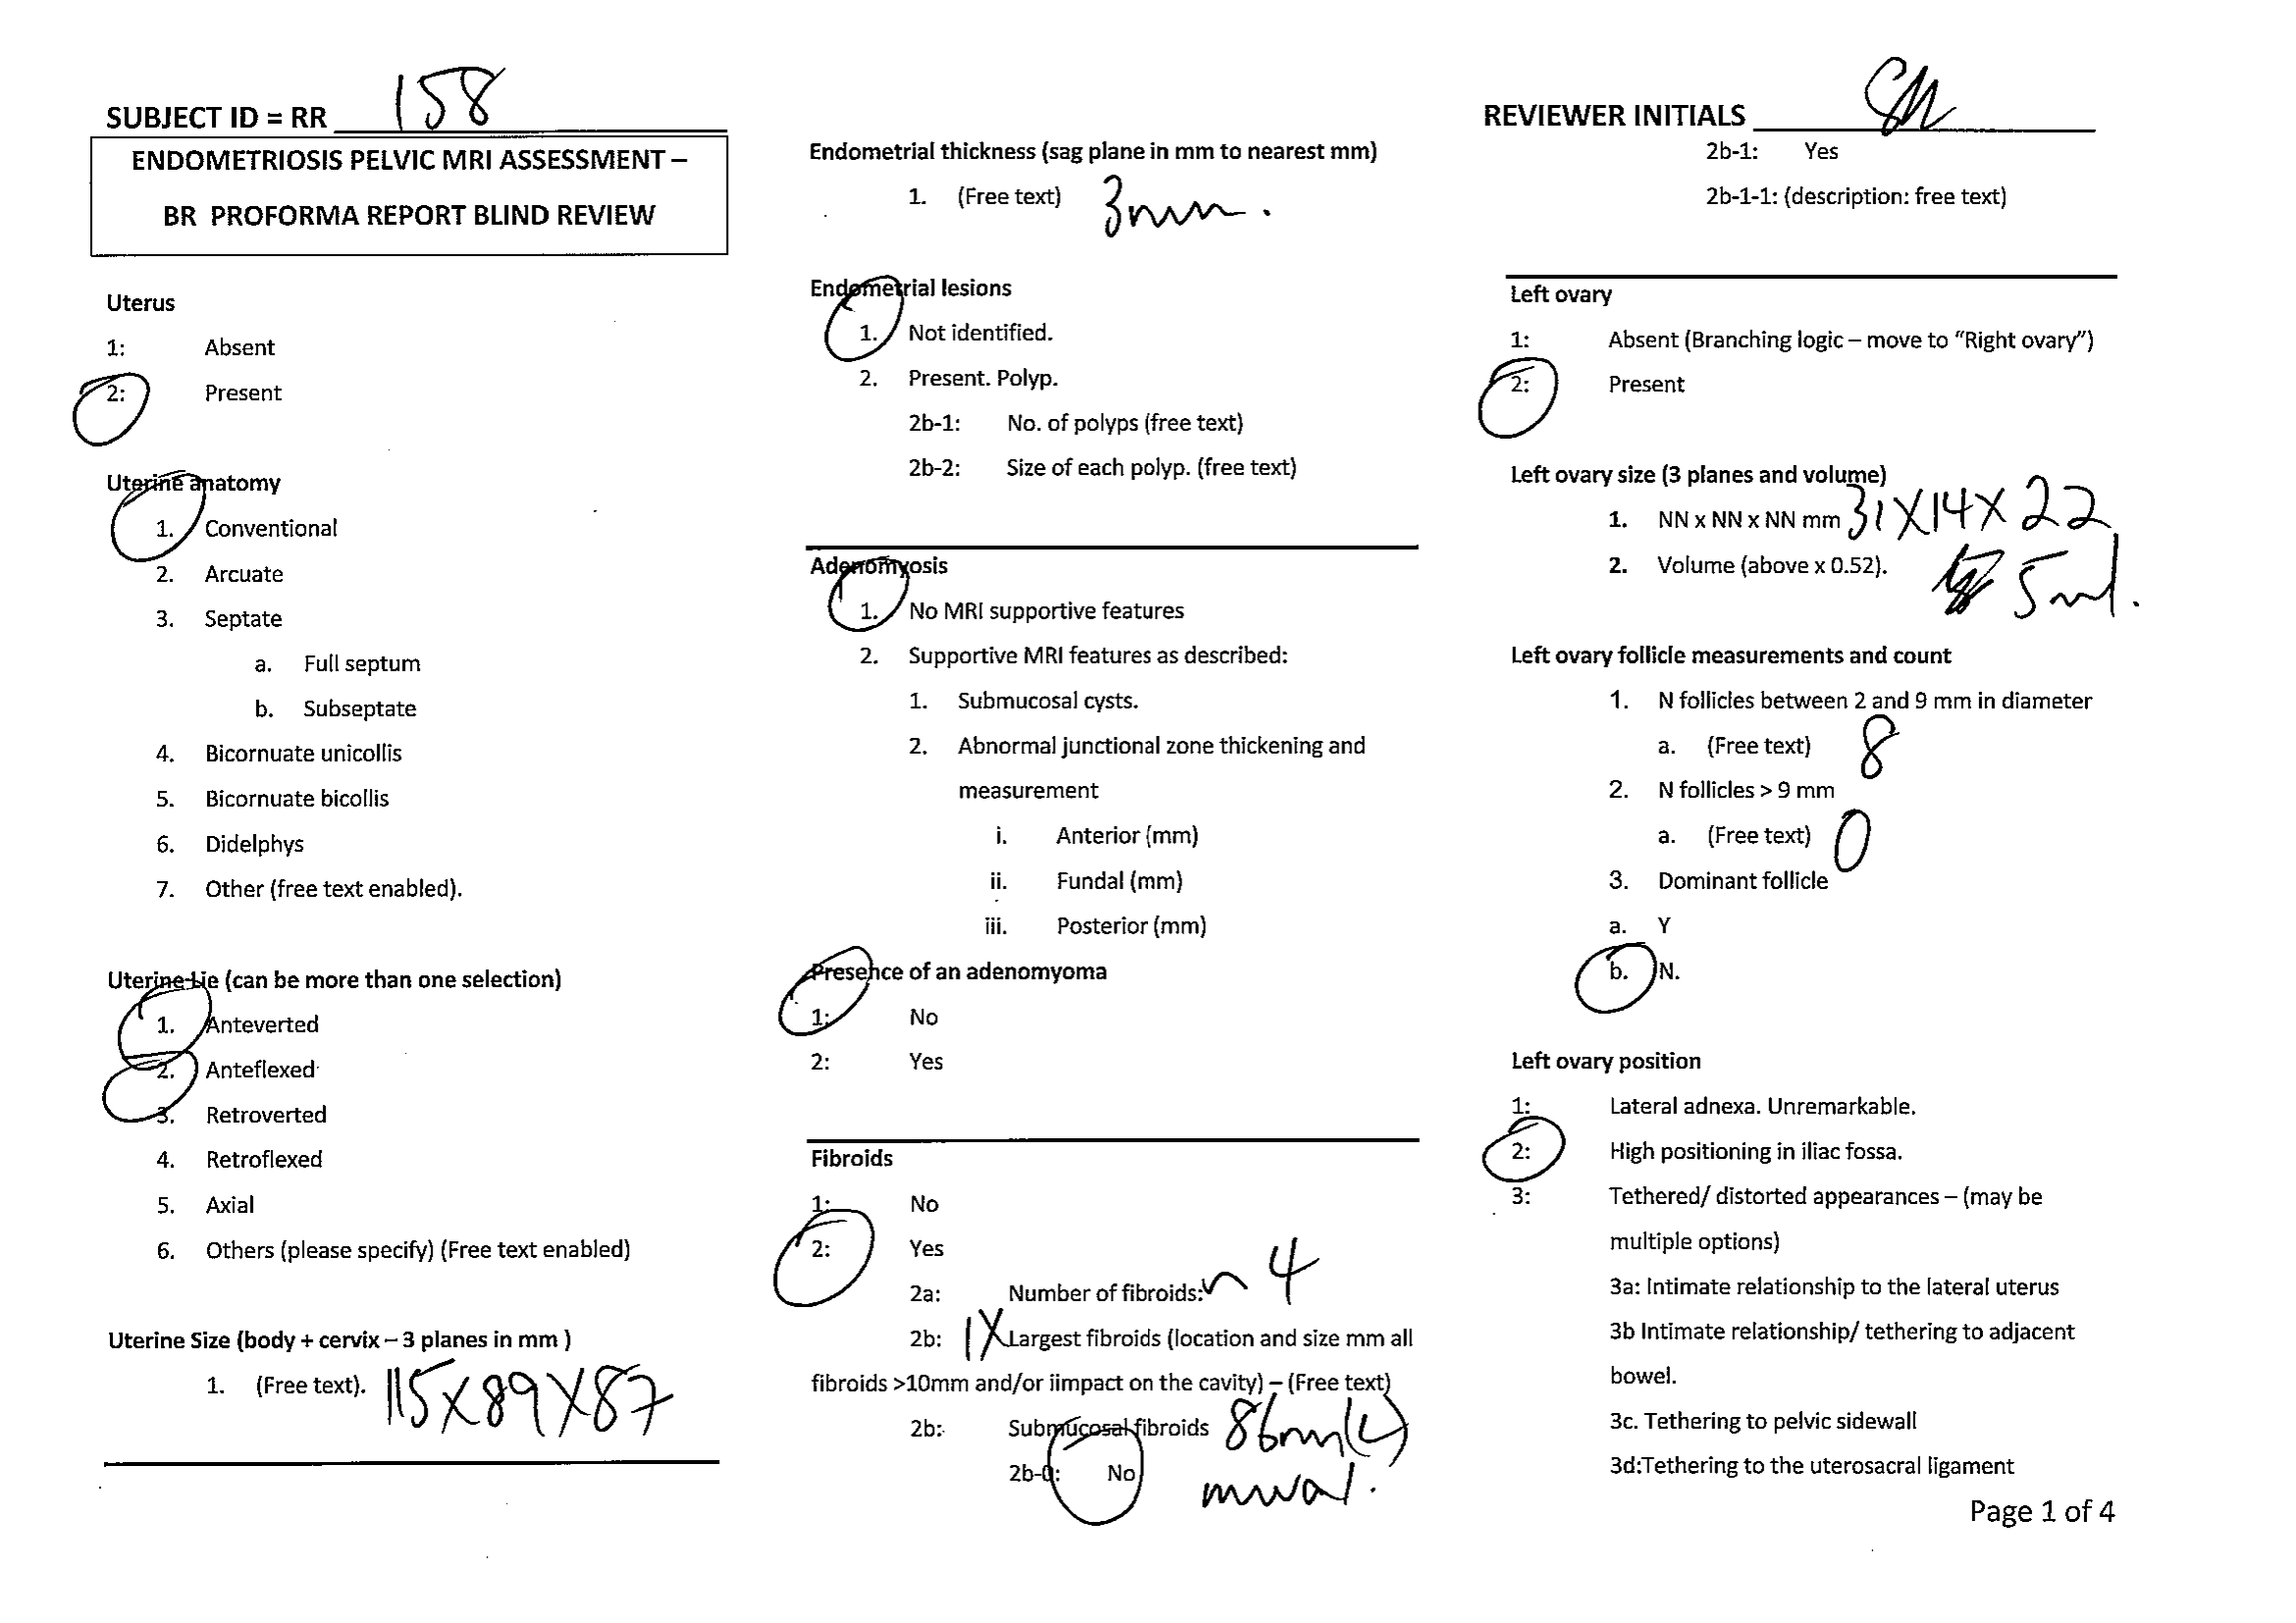 SUBJECT ID = RR 158
ENDOMETRIOSIS PELVIC MRI ASSESSMENT –
BR PROFORMA REPORT BLIND REVIEW
Uterus
1: Absent
2: Present
Uterine anatomy
1. Conventional
2. Arcuate
3. Septate
a. Full septum
b. Subseptate
4. Bicornuate unicollis
5. Bicornuate bicollis
6. Didelphys
7. Other (free text enabled).
Uterine Lie (can be more than one selection)
1. Anteverted
2. Anteflexed
3. Retroverted
4. Retroflexed
5. Axial
6. Others (please specify) (Free text enabled)
Uterine Size (body + cervix – 3 planes in mm )
1. (Free text). 115X89X87
Endometrial thickness (sag plane in mm to nearest mm)
1. (Free text) 3mm.
Endometrial lesions
1. Not identified.
2. Present. Polyp.
2b-1: No. of polyps (free text)
2b-2: Size of each polyp. (free text)
Adenomyosis
1. No MRI supportive features
2. Supportive MRI features as described:
1. Submucosal cysts.
2. Abnormal junctional zone thickening and
measurement
i. Anterior (mm)
ii. Fundal (mm)
iii. Posterior (mm)
Presence of an adenomyoma
1: No
2: Yes
Fibroids
1: No
2: Yes
2a: Number of fibroids: ~ 4
2b: 1X Largest fibroids (location and size mm all
fibroids >10mm and/or iimpact on the cavity) – (Free text)
2b: Submucosal fibroids 86mm (L)
2b-0: No
REVIEWER INITIALS
2b-1: Yes
2b-1-1: (description: free text)
Left ovary
1: Absent (Branching logic – move to “Right ovary”)
2: Present
Left ovary size (3 planes and volume)
1. NN x NN x NN mm 31X14X22
2. Volume (above x 0.52). 5ml.
Left ovary follicle measurements and count
1. N follicles between 2 and 9 mm in diameter
a. (Free text) 8
2. N follicles > 9 mm
a. (Free text) 0
3. Dominant follicle
a. Y
b. N.
Left ovary position
1: Lateral adnexa. Unremarkable.
2: High positioning in iliac fossa.
3: Tethered/ distorted appearances – (may be
multiple options)
3a: Intimate relationship to the lateral uterus
3b Intimate relationship/ tethering to adjacent
bowel.
3c. Tethering to pelvic sidewall
3d:Tethering to the uterosacral ligament
Page 1 of 4